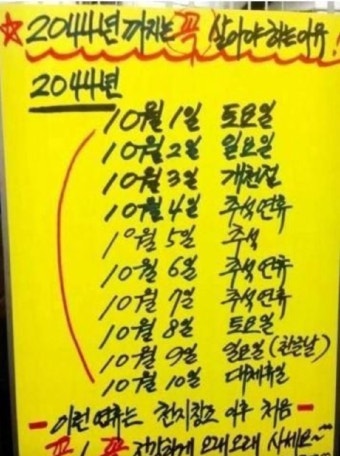 ☆2044년 까지는 꼭 살아야 하는 이유!
2044년
10월 1일 토요일
10월 2일 일요일
10월 3일 개천절
10월 4일 추석연휴
10월 5일 추석
10월 6일 추석연휴
10월 7일 추석연휴
10월 8일 토요일
10월 9일 일요일(한글날)
10월 10일 대체휴일
- 이런 연휴는 천지창조 이후 처음 -
꼭! 꼭 건강하게 오래오래 사세요~